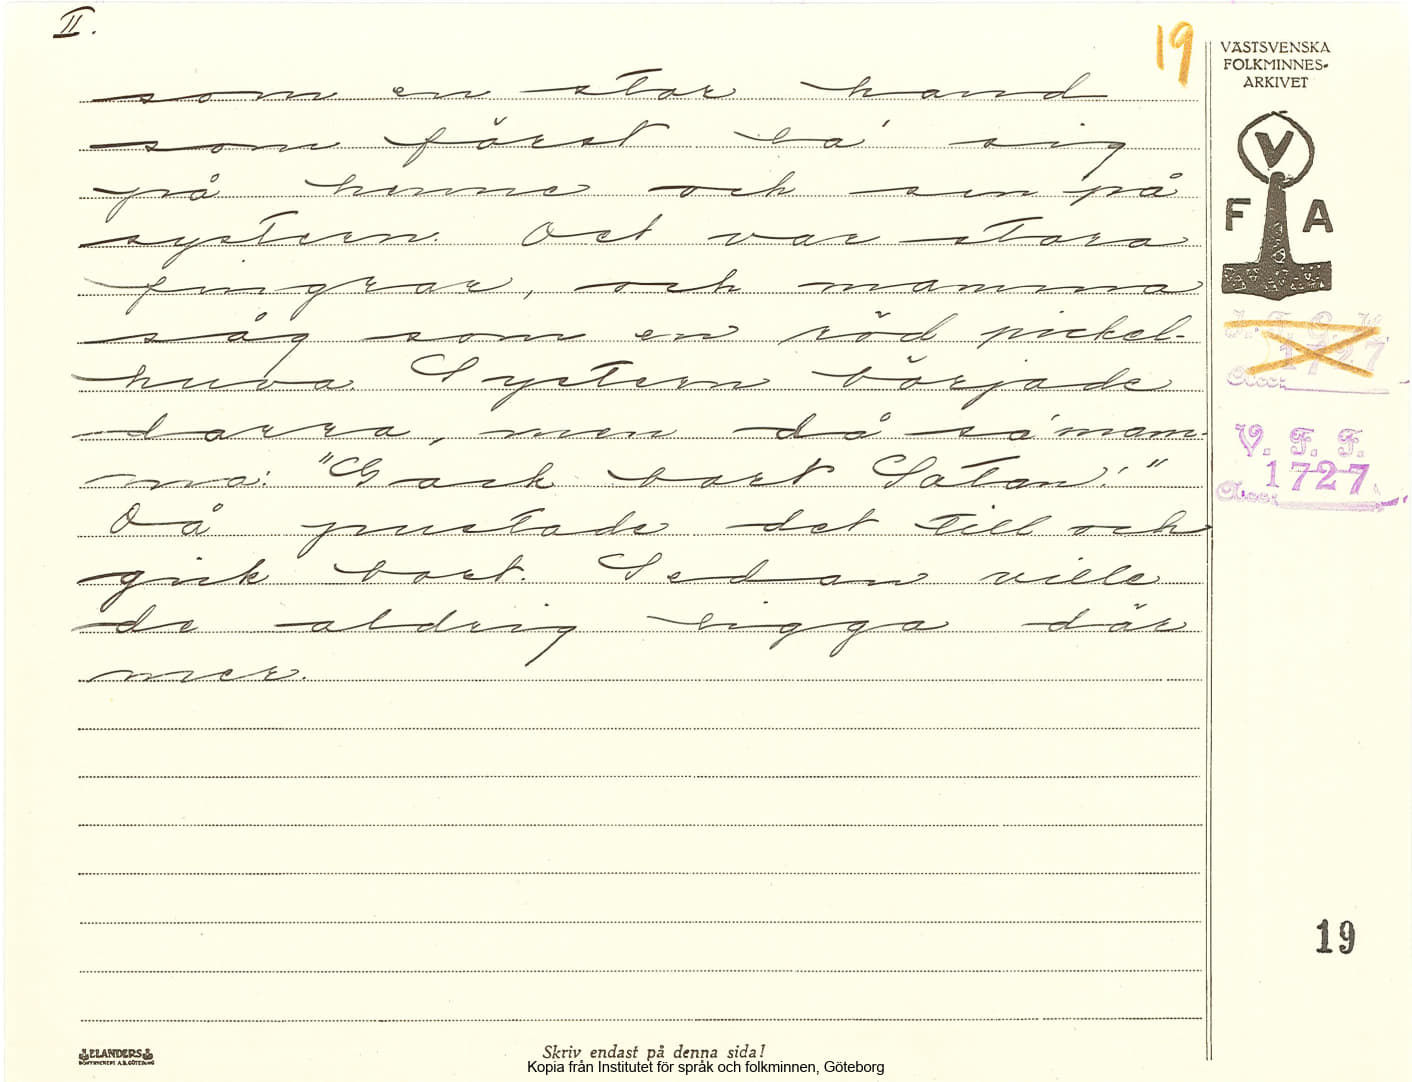 II.
19
VÄSTSVENSKA
FOLKMINNES-
ARKIVET
V
F A
som en stor hand
som först la' sig
på henne och sen på
systern. Det var stora
fingrar, och mamma
såg som en röd pickel-
huva. Systern började
darra, men då sa' mam-
ma: "Gack bort Satan!"
Då pustade det till och
gick bort. Sedan ville
de aldrig ligga där
mer.
1727
Acc:
V. F. F.
1727
Acc:
19
ELANDERS
BOKTRYCKERI A.B. GÖTEBORG
Skriv endast på denna sida!
Kopia från Institutet för språk och folkminnen, Göteborg